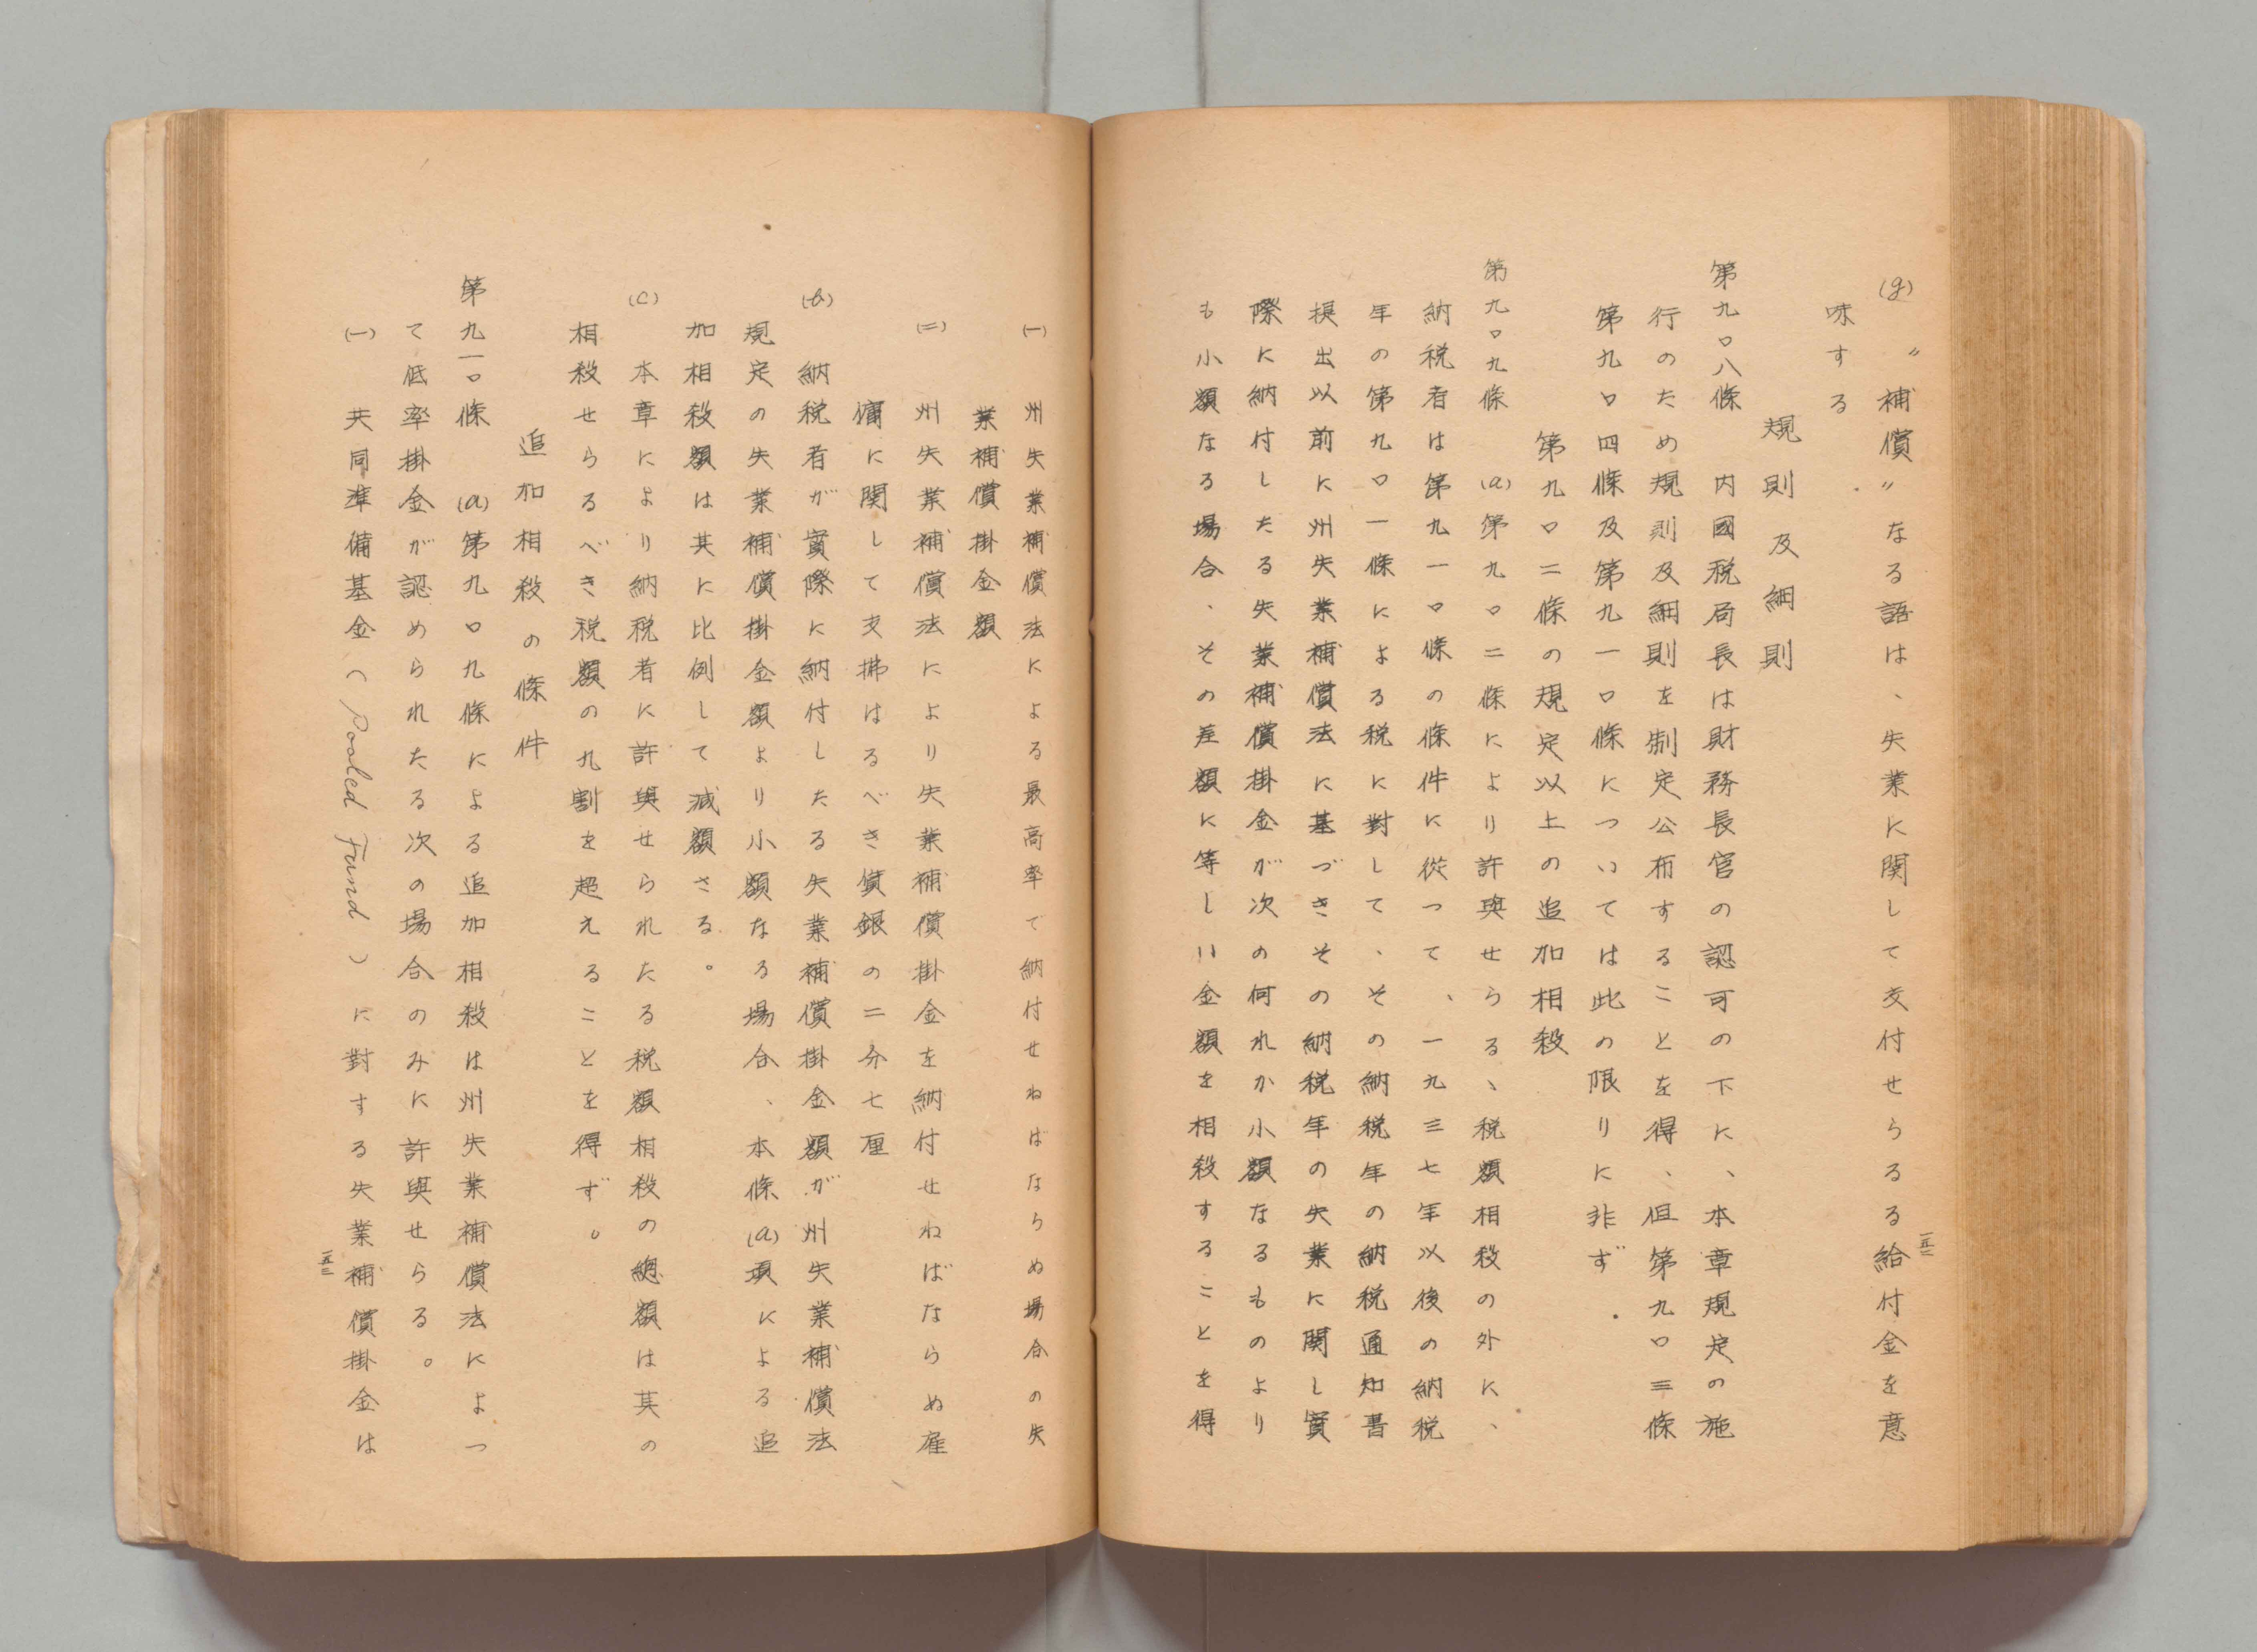 (g) 〃補償〃なる語は、失業に関して交付せらるる給付金を意
味する.
規則及細則
第九〇八條 内國税局長は財務長官の認可の下に、本章規定の施
行のため規則及細則を制定公布することを得、但第九〇三條
第九〇四條及第九一〇條については此の限りに非ず.
第九〇二條の規定以上の追加相殺
第九〇九條 (a)第九〇二條により許與せらるゝ税額相殺の外に、
納税者は第九一〇條の條件に從つて、一九三七年以後の納税
年の第九〇一條による税に對して、その納税年の納税通知書
提出以前に州失業補償法に基づきその納税年の失業に関し實
際に納付したる失業補償掛金が次の何れか小額なるものより
も小額なる場合、その差額に等しい金額を相殺することを得
一五二
(一) 州失業補償法による最高率で納付せねばならぬ場合の失
業補償掛金額
(二) 州失業補償法により失業補償掛金を納付せねばならぬ雇
傭に関して支拂はるべき賃銀の二分七厘
(b) 納税者が實際に納付したる失業補償掛金額が州失業補償法
規定の失業補償掛金額より小額なる場合、本條(a)項による追
加相殺額は其に比例して減額さる。
(c) 本章により納税者に許與せられたる税額相殺の總額は其の
相殺せらるべき税額の九割を超えることを得ず。
追加相殺の條件
第九一〇條 (a)第九〇九條による追加相殺は州失業補償法によつ
て低率掛金が認められたる次の場合のみに許與せらる。
(一) 共同準備基金(Pooled Fund)に對する失業補償掛金は